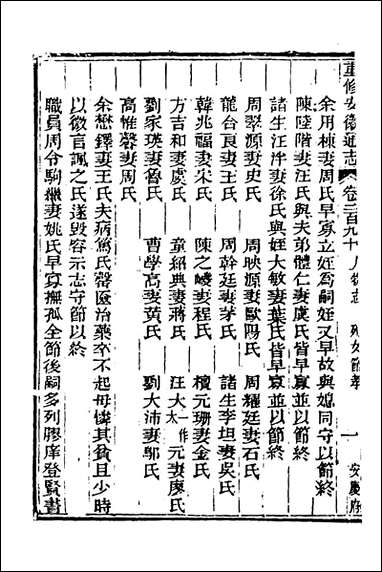 重修安徽通志 卷二百九十 人物志 列女節孝 一 安慶府
余用棟妻周氏早寡立姪為嗣姪又早故與媳同守以節終
陳陞階妻汪氏與夫弟體仁妻虞氏皆早寡並以節終
諸生汪泮妻徐氏與姪大敏妻葉氏皆早寡並以節終
周翠源妻史氏 周映源妻歐陽氏 周耀廷妻石氏
龍台良妻王氏 周幹廷妻茅氏 諸生李坦妻吳氏
韓兆福妻朱氏 陳之崚妻程氏 檀元珊妻金氏
方吉和妻虞氏 章紹典妻蔣氏 汪大一作太元妻廖氏
劉家瑛妻魯氏 曹學高妻黃氏 劉大沛妻鄔氏
高惟馨妻周氏
余懋鐸妻王氏夫病篤氏罄匳治藥卒不起母憐其貧且少時
以微言諷之氏遂毀容示志守節以終
職員周令駒繼妻姚氏早寡撫孤全節後嗣多列膠庠登賢書